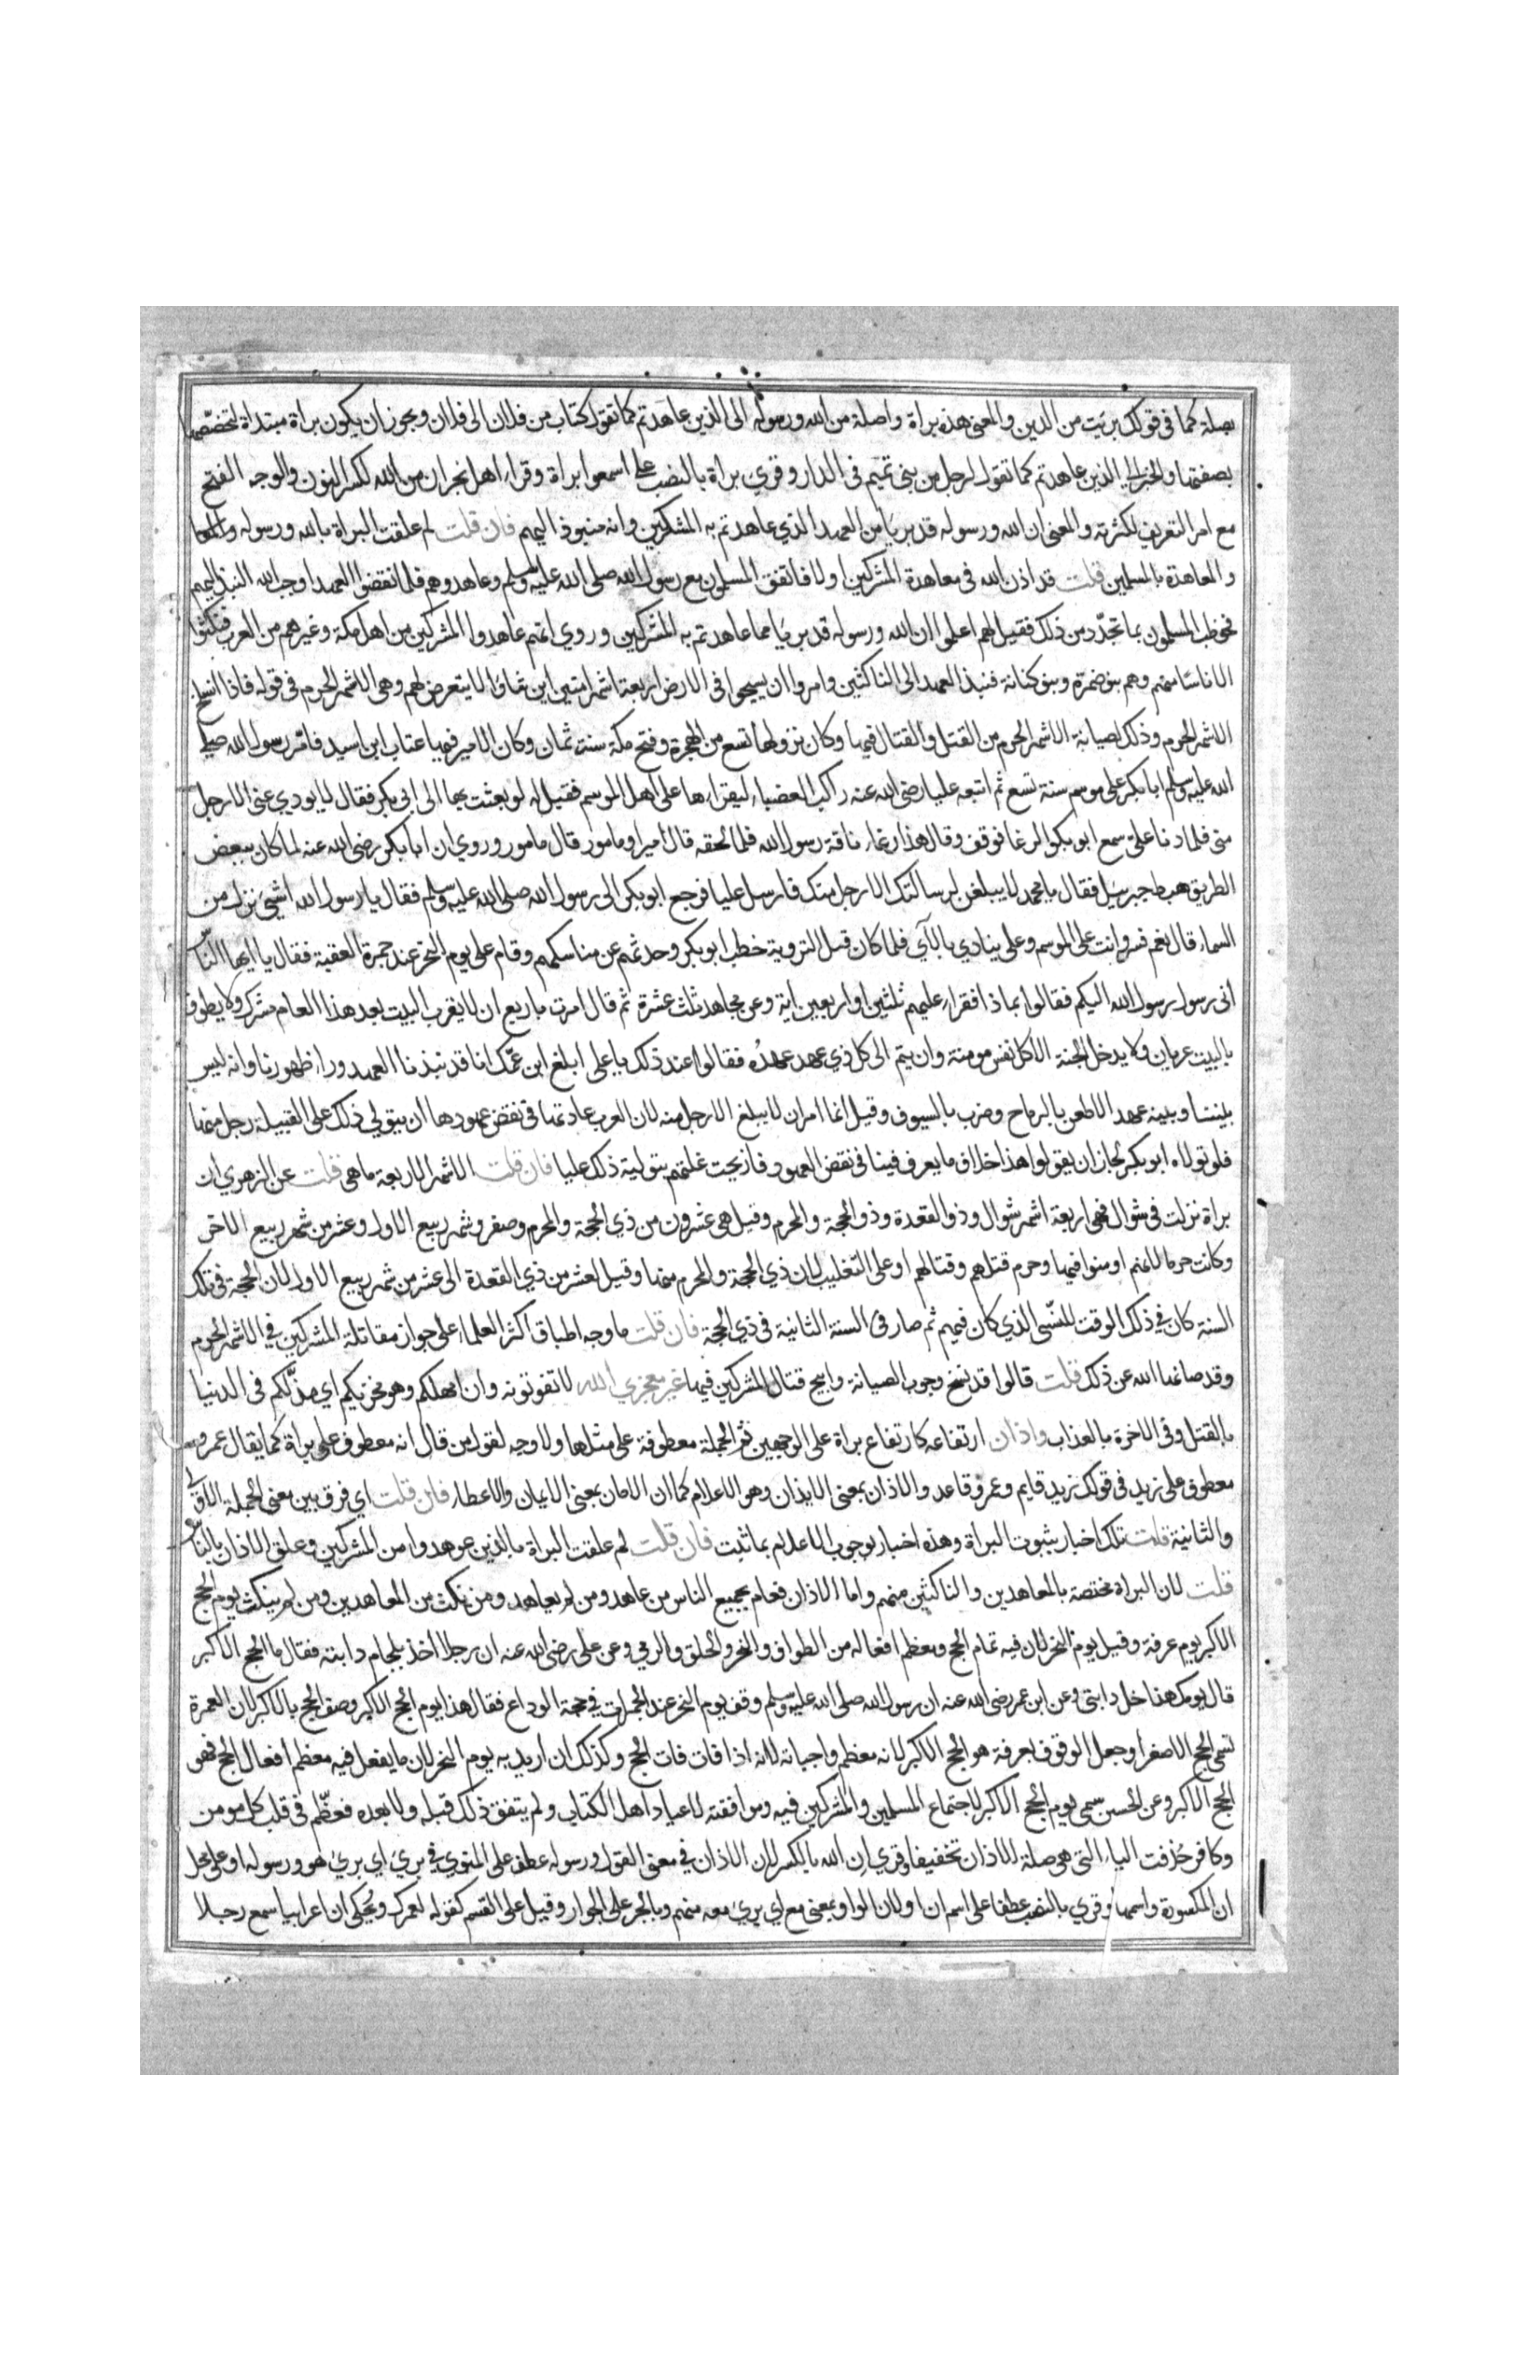 بصلة كما في قولك بريت من الدين والمعنى هذه براة واصلة من الله ورسوله الى الذين عاهدتم كما تقول كتاب من فلان الى فلان ويجوز ان يكون براة مبتداة لتخصّصها
بصفتها والخبر الى الذين عاهدتم كما تقول لرجل من بني تميم في الدار وقري براة بالنصب على اسمعوا براة وقراء اهل نجران من الله لكسر النون والوجه الفتح
مع لام التعريف لكثرته والمعنى ان الله ورسوله قد بريا من العهد الذي عاهدتم به المشركين وانه منبوذ اليهم فان قلت لم علقت البراة بالله ورسوله
والمعاهدة بالمسلمين قلت قد اذن الله في معاهدة المشركين اولا فاتفق المسلمون مع رسول الله صلى الله عليه وسلم وعاهدوهم فلما نقضوا العهد اوجب الله النبذ اليهم
فخوطب المسلمون بما تجدّد من ذلك فقيل لهم اعلموا ان الله ورسوله قد بريا مما عاهدتم به المشركين وروي انهم عاهدوا المشركين من اهل مكة وغيرهم من العرب فنكثوا
الا ناسًا منهم وهم بنو ضمرة وبنو كنانة فنبذ العهد الى الناكثين وامروا ان يسيحوا في الارض اربعة اشهر امنين اين شاؤا لا يتعرض لهم وهي الاشهر الحرم في قوله فاذا انسلخ
الاشهر الحرم وذلك لصيانة الاشهر الحرم من القتل والقتال فيها وكان نزولها تسع من الهجرة وفتح مكة سنة ثمان وكان الامير فيها عتاب ابن اسيد فامّر رسول الله صلى
الله عليه وسلم ابا بكر على موسم سنة تسع ثم اتبعه عليا رضي الله عنه راكب العضباء ليقراءها على اهل الموسم فقيل له لو بعثت بها الى ابي بكر فقال لا يودي عني الا رجل
مني فلما دنا علي سمع ابو بكر الرغا فوقف وقال هذا رغاء ناقة رسول الله فلما لحقه قال امير او مامور قال مامور وروي ان ابا بكر رضي الله عنه لما كان ببعض
الطريق هبط جبرئيل فقال يا محمد لا يبلغن لرسالتك الا رجل منك فارسل عليا فرجع ابو بكر الى رسول الله صلى الله عليه وسلم فقال يا رسول الله اشيئ نزل من
السماء قال نعم فسر وانت على الموسم وعلي ينادي بالآي فلما كان قبل التروية خطب ابو بكر وحدثهم عن مناسكهم وقام علي يوم النحر عند جمرة العقبة فقال يا ايها النّاس
اني رسول رسول الله اليكم فقالوا بماذا فقراء عليهم ثلثين او اربعين اية وعن مجاهد ثلث عشرة ثم قال امرت باربع ان لا يقرب البيت بعد هذا العام مشرك ولا يطوف
بالبيت عريان ولا يدخل الجنة الا كل نفس مومنة وان يتم الى كل ذي عهد عهدُه فقالوا عند ذلك يا علي ابلغ ابن عمّك انا قد نبذنا العهد وراء ظهورنا وانه ليس
بيننا وبينه عهد الا طعن بالرماح وضرب بالسيوف وقيل انما امر ان لا يبلغ الا رجل منه لان العرب عادتها في نقض عهودها ان يتولي ذلك على القبيلة رجل منها
فلو تولاه ابو بكر لجاز ان يقولوا هذا خلاف ما يعرف فينا في نقض العهود فازيحت علتهم بتولية ذلك عليا فان قلت الاشهر الاربعة ما هي قلت عن الزهري ان
براة نزلت في شوال فهي اربعة اشهر شوال وذو القعدة وذو الحجة والمحرم وقيل هي عشرون من ذي الحجة والمحرم وصفر وشهر ربيع الاول وعشر من شهر ربيع الاخر
وكانت حرما لانهم اومنوا فيها وحرم قتلهم وقتالهم او على التغليب لان ذي الحجة والمحرم منها وقيل لعشر من ذي القعدة الى عشر من شهر ربيع الاول لان الحجة في تلك
السنة كان في ذلك الوقت للنّسي الذي كان فيهم ثم صار في السنة الثانية في ذي الحجة فان قلت ما وجه اطباق اكثر العلماء على جواز مقاتلة المشركين في الاشهر الحرم
وقد صانها الله عن ذلك قلت قالوا قد نسخ وجوب الصيانة وابيح قتال المشركين فيها غير معجزي الله لا تفوتونه وان امهلكم وهو مخزيكم اي مذّلكم في الدنيا
بالقتل وفي الاخرة بالعذاب واذان ارتفاعه كارتفاع براة على الوجهين ثم الجملة معطوفة على مثلها ولا وجه لقول من قال انه معطوف على براة كما يقال عمرو
معطوف على زيد في قولك زيد قايم وعمرو قاعد والاذان بمعنى الايذان وهو الاعلام كما ان الامان بمعنى الايمان والاعطاء فان قلت اي فرق بين معنى الجملة الاولى
والثانية قلت تلك اخبار بثبوت البراة وهذه اخبار بوجوب الاعلام بما ثبت فان قلت لم علقت البراة بالذين عوهدوا من المشركين وعلق الاذان بالنّاس
قلت لان البراة مختصة بالمعاهدين والناكثين منهم واما الاذان فعام بجميع الناس من عاهد ومن لم يعاهد ومن نكث من المعاهدين ومن لم ينكث يوم الحج
الاكبر يوم عرفة وقيل يوم النحر لان فيه تمام الحج ومعظم افعاله من الطواف والنحر والحلق والرمي وعن علي رضي الله عنه ان رجلا اخذ بلجام دابته فقال ما الحج الاكبر
قال يومك هذا خل دابتي وعن ابن عمر رضي الله عنه ان رسول الله صلى الله عليه وسلم وقف يوم النحر عند الجمرات في حجة الوداع فقال هذا يوم الحج الاكبر وصف الحج بالاكبر لان العمرة
تسمى الحج الاصغر او جعل الوقوف بعرفة هو الحج الاكبر لانه معظم واجباته لانه اذا فات فات الحج وكذلك ان اريد به يوم النحر لان ما يفعل فيه معظم افعال الحج فهو
الحج الاكبر وعن الحسن سمي يوم الحج الاكبر لاجتماع المسلمين والمشركين فيه وموافقته لاعياد اهل الكتاب ولم يتفق ذلك قبله ولا بعده فعظّم في قلب كل مومن
وكافر حُذفت الياء التي هي صلة الاذان تخفيفا وقري اِن الله بالكسر لان الاذان في معنى القول ورسوله عطف على المنوي في بريئ اي بريئ هو ورسوله او على محل
ان المكسورة واسمها وقري بالنصب عطفا على اسم ان او لان الواو بمعنى مع اي بريئ معه منهم وبالجر على الجوار وقيل على القسم كقوله لعمرك ويُحكى ان اعرابيا سمع رجلا